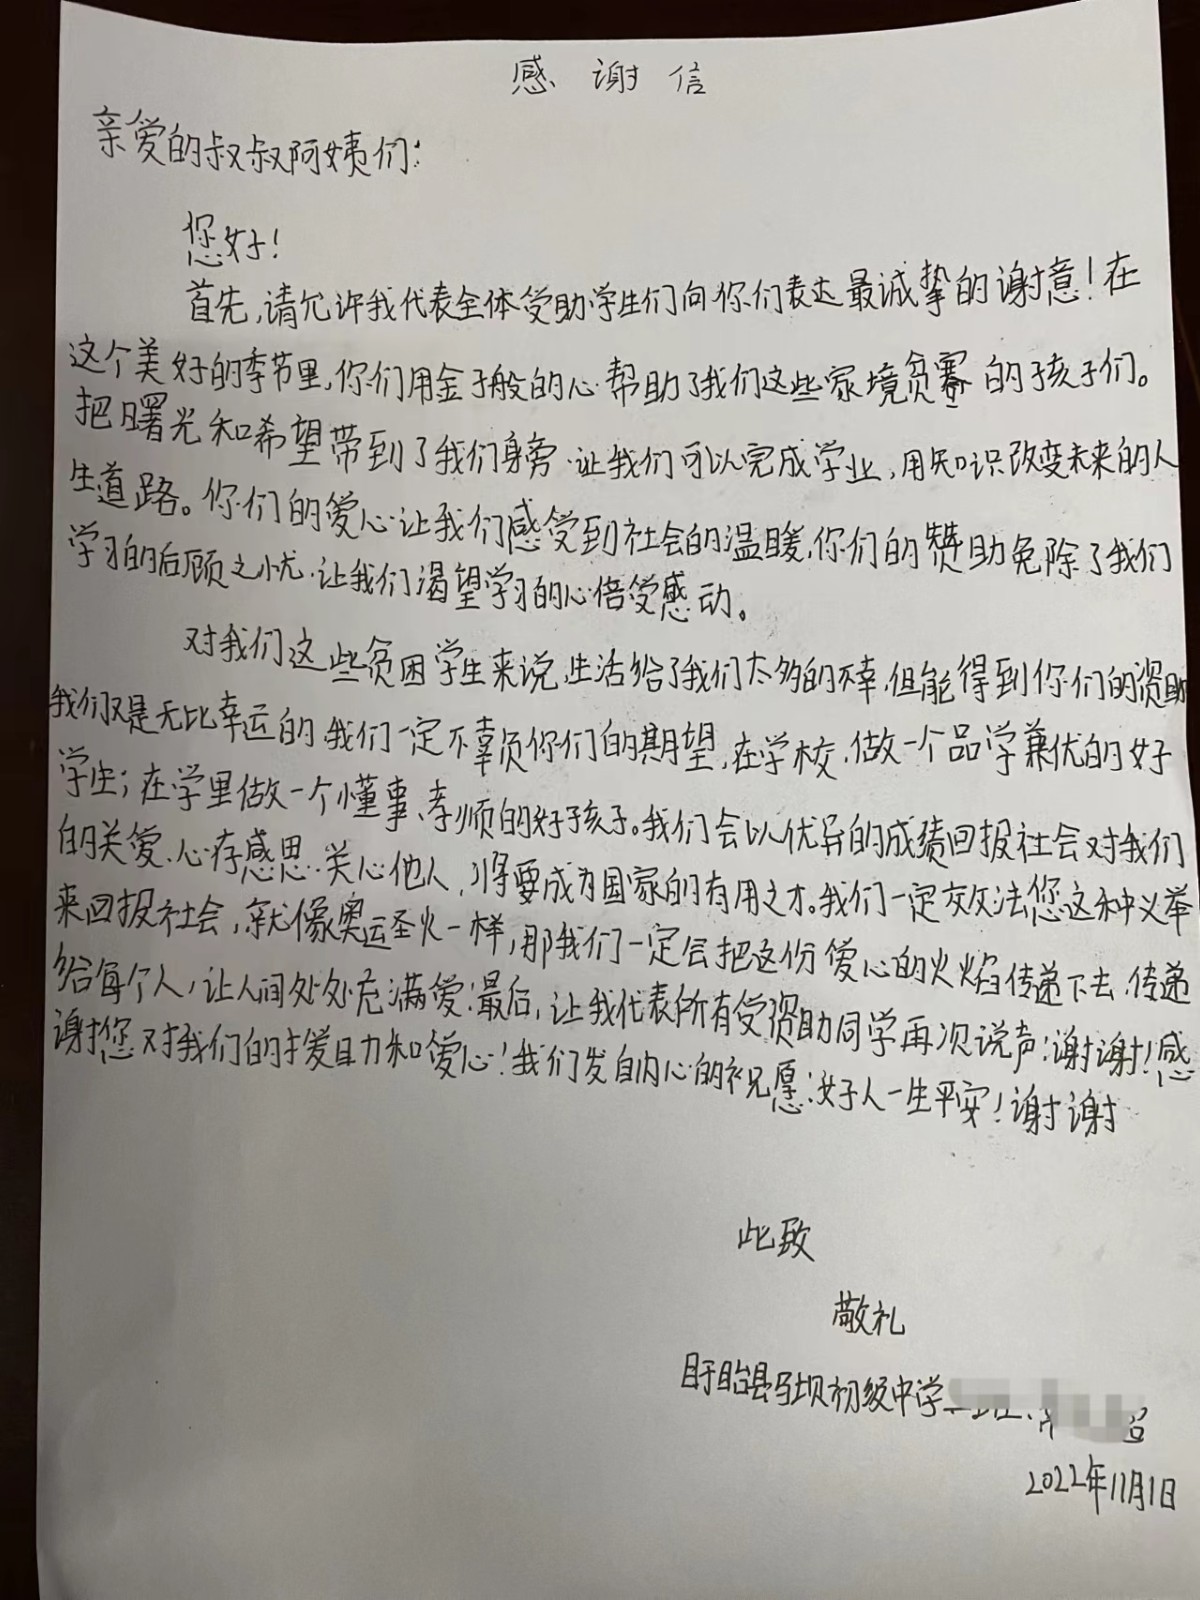 感谢信
亲爱的叔叔阿姨们:
您好!
首先,请允许我代表全体受助学生们向你们表达最诚挚的谢意!在
这个美好的季节里,你们用金子般的心帮助了我们这些家境贫寒的孩子们。
把曙光和希望带到了我们身旁.让我们可以完成学业,用知识改变未来的人
生道路。你们的爱心让我们感受到社会的温暖,你们的赞助免除了我们
学习的后顾之忧.让我们渴望学习的心倍受感动。
对我们这些贫困学生来说,生活给了我们太多的不幸,但能得到你们的资助
我们又是无比幸运的.我们一定不辜负你们的期望,在学校.做一个品学兼优的好
学生;在学里做一个懂事、孝顺的好孩子。我们会以优异的成绩回报社会对我们
的关爱、心存感恩.关心他人,将要成为国家的有用之才。我们一定效法您这种义举
来回报社会,就像奥运圣火一样,那我们一定会把这份爱心的火焰传递下去.传递
给每个人,让人间处处充满爱!最后,让我代表所有受资助同学再次说声:谢谢!感
谢您对我们的援助和爱心!我们发自内心的祝愿:好人一生平安!谢谢
此致
敬礼
盱眙县马坝初级中学
2022年11月1日